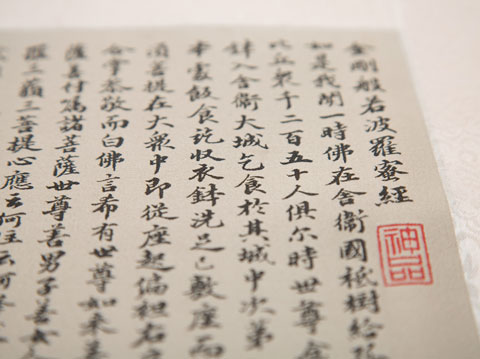 金剛般若波羅蜜經
神品
如是我聞一時佛在舍衛國祇樹給
比丘衆千二百五十人俱尔時世尊食
鉢入舍衛大城乞食於其城中次第
本處飯食訖収衣鉢洗足已敷座而
須菩提在大衆中即從座起偏袒右
合掌恭敬而白佛言希有世尊如来善
薩善付囑諸菩薩世尊善男子善女
羅三藐三菩提心應云何住云何